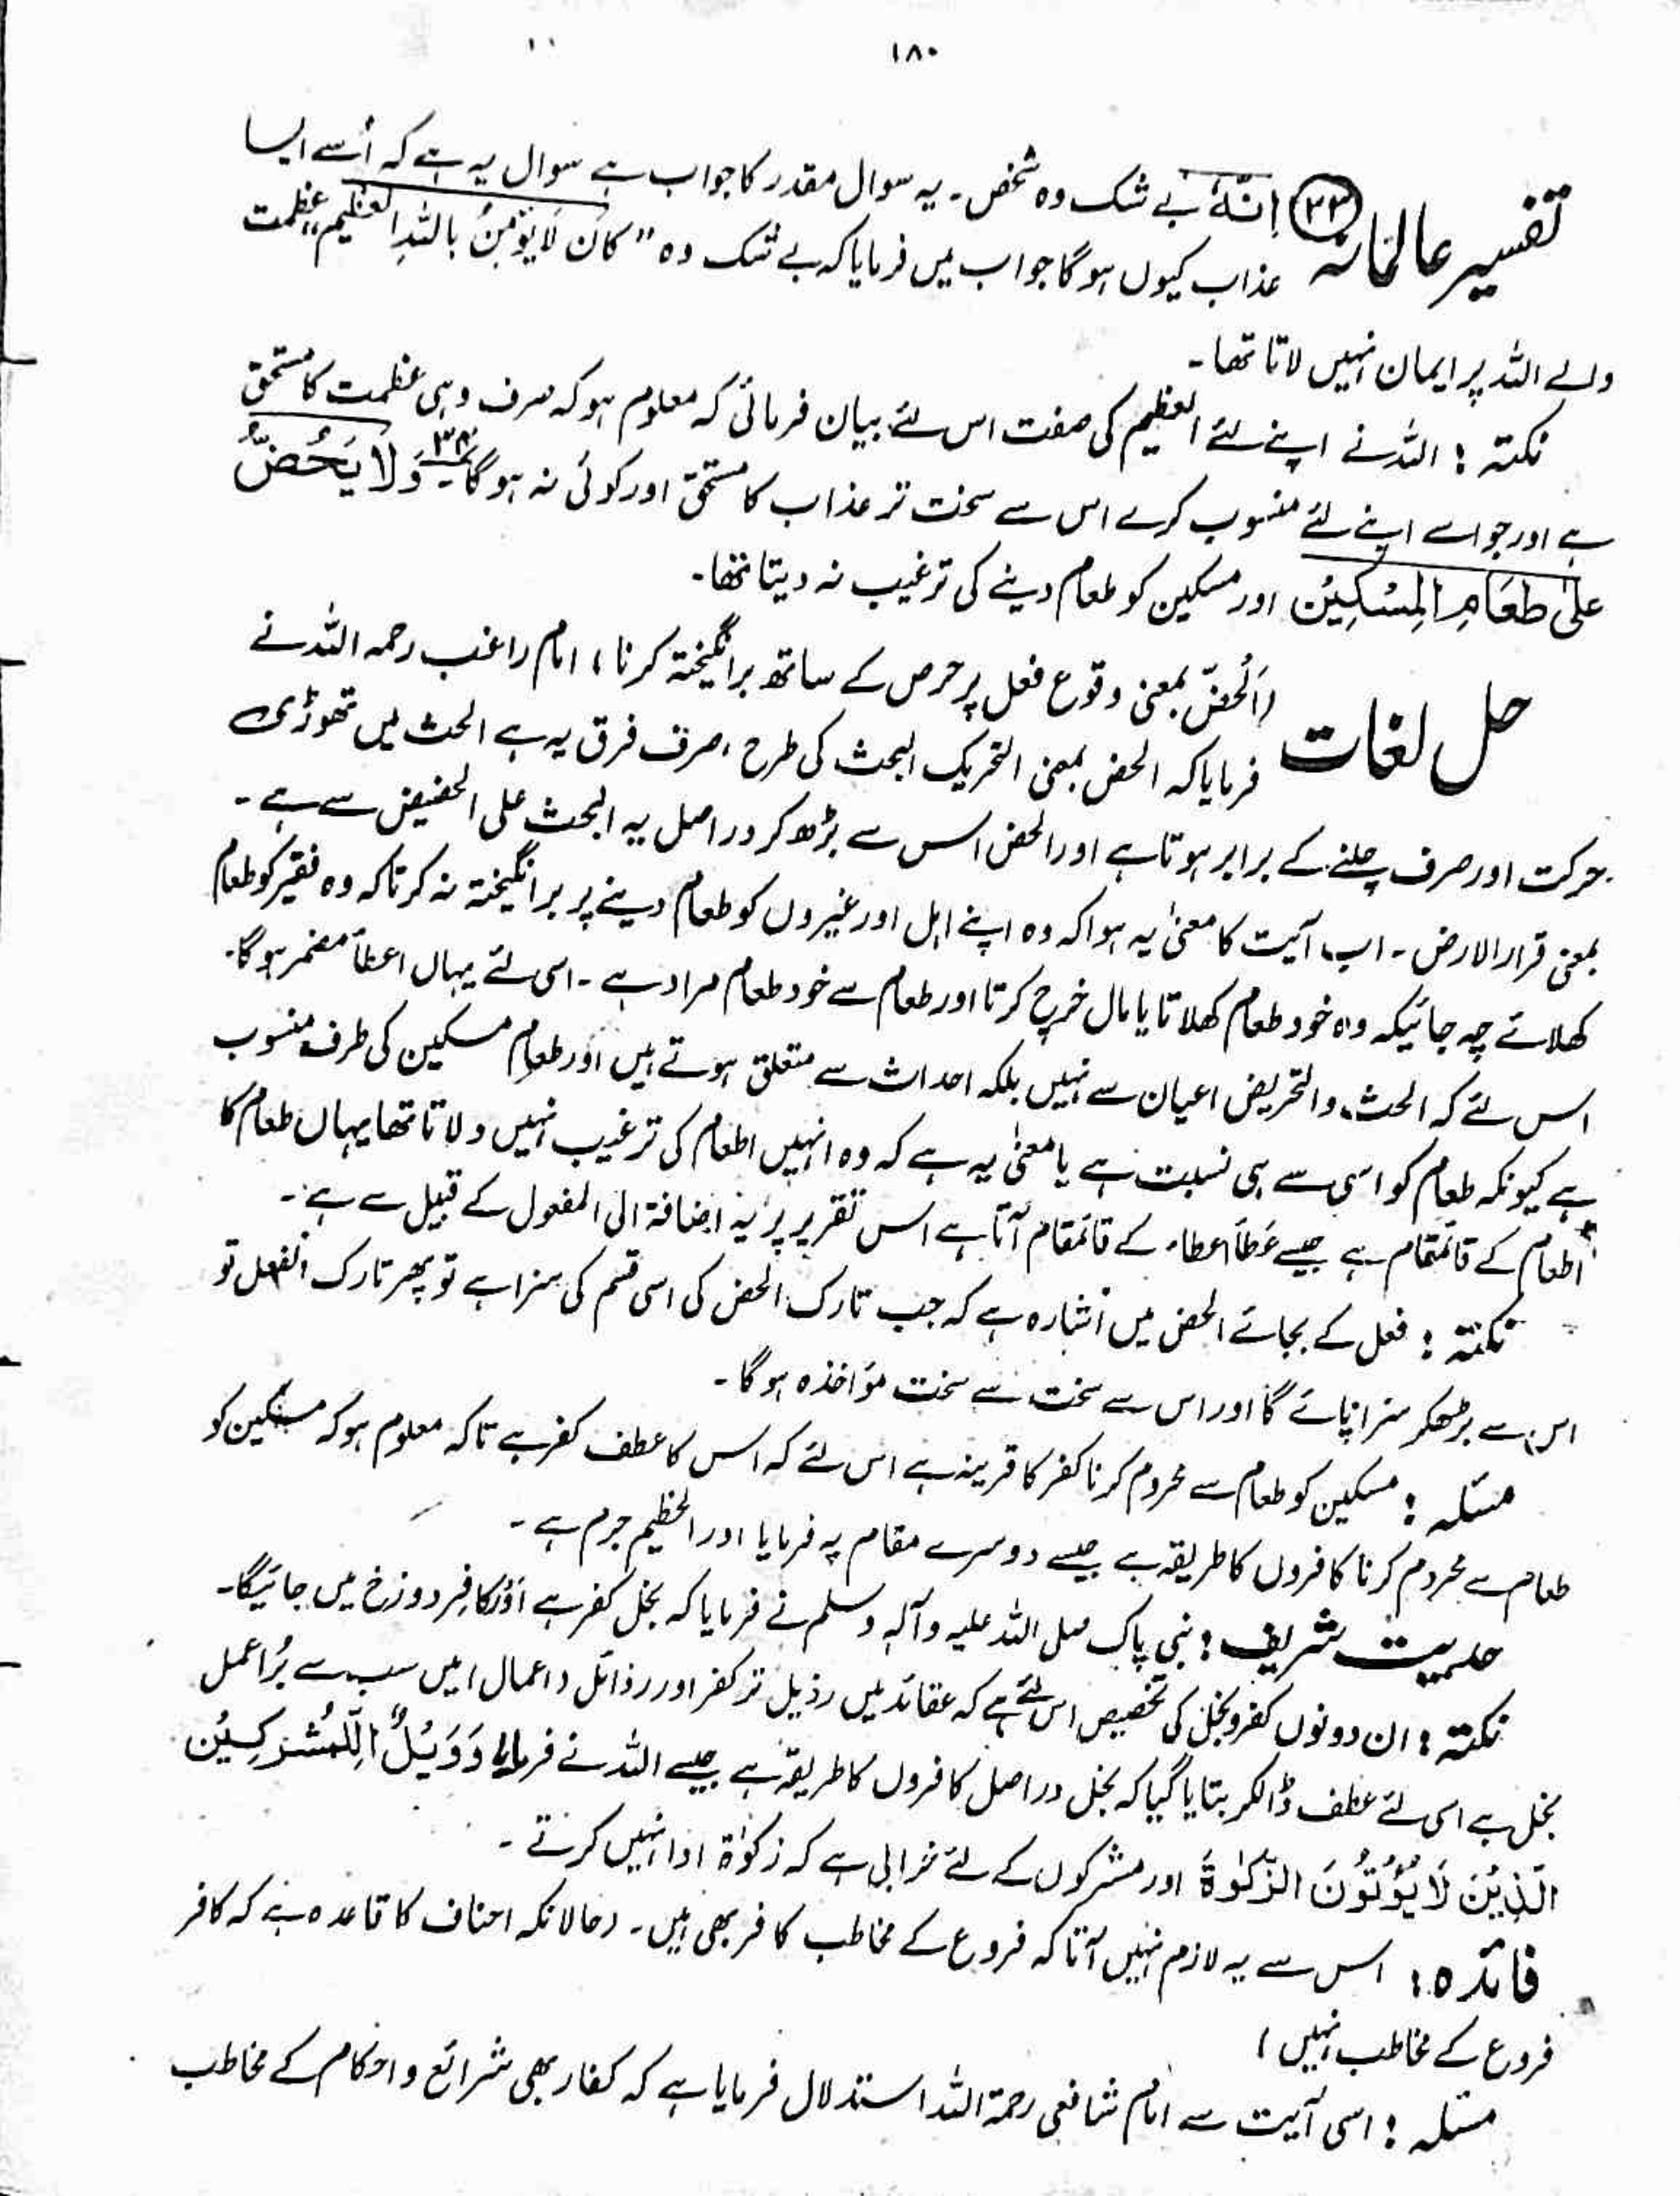 ۱۸۰
تفسیر عالمانہ (۳۳) اِنَّہٗ بے شک وہ شخص۔ یہ سوال مقدر کا جواب ہے سوال یہ ہے کہ اُسے ایسا
عذاب کیوں ہوگا جواب میں فرمایا کہ بے شک وہ "کَانَ لَا یُؤْمِنُ بِاللّٰہِ الْعَظِیْمِ" عظمت
والے اللہ پر ایمان نہیں لاتا تھا۔
نکتہ : اللہ نے اپنے لئے العظیم کی صفت اس لئے بیان فرمائی کہ معلوم ہو کہ صرف وہی عظمت کا مستحق
ہے اور جو اسے اپنے لئے منسوب کرے اس سے سخت تر عذاب کا مستحق اور کوئی نہ ہوگا۔ ۳۴ وَلَا یَحُضُّ
عَلٰی طَعَامِ الْمِسْکِیْنِ اور مسکین کو طعام دینے کی ترغیب نہ دیتا تھا۔
حل لغات (اَلْحَضّ بمعنی وقوع فعل پر حرص کے ساتھ برانگیختہ کرنا، امام راغب رحمہ اللہ نے
فرمایا کہ الحض بمعنی التحریک الحث کی طرح، صرف فرق یہ ہے الحث میں تھوڑی
حرکت اور صرف چلنے کے برابر ہوتا ہے اور الحض اس سے بڑھ کر دراصل یہ الحث علی الحضیض سے ہے۔
بمعنی قرار الارض۔ اب آیت کا معنیٰ یہ ہوا کہ وہ اپنے اہل اور غیروں کو طعام دینے پر برانگیختہ نہ کرتا کہ وہ فقیر کو طعام
کھلائے چہ جائیکہ وہ خود طعام کھلاتا یا مال خرچ کرتا اور طعام سے خود طعام مراد ہے۔ اسی لئے یہاں اعطأ مضمر ہوگا۔
اس لئے کہ الحث والتحریض اعیان سے نہیں بلکہ احداث سے متعلق ہوتے ہیں اور طعام مسکین کی طرف منسوب
ہے کیونکہ طعام کو اسی سے ہی نسبت ہے یا معنیٰ یہ ہے کہ وہ انہیں اطعام کی ترغیب نہیں دلاتا تھا یہاں طعام کا
اطعام کے قائمقام ہے جیسے عَطَأ اعطاء کے قائمقام آتا ہے اس تقریر پر یہ اضافۃ الی المفعول کے قبیل سے ہے۔
نکتہ : فعل کے بجائے الحض میں اشارہ ہے کہ جب تارک الحض کی اسی قسم کی سزا ہے تو پھر تارک الفعل تو
اس سے بڑھکر سزا پائے گا اور اس سے سخت سے سخت مؤاخذہ ہوگا۔
مسئلہ : مسکین کو طعام سے محروم کرنا کفر کا قرینہ ہے اس لئے کہ اس کا عطف کفر ہے تاکہ معلوم ہو کہ مسکین کو
طعام سے محروم کرنا کافروں کا طریقہ ہے جیسے دوسرے مقام پہ فرمایا اور العظیم جرم ہے۔
حدیث شریف : نبی پاک صلی اللہ علیہ وآلہ وسلم نے فرمایا کہ بخل کفر ہے اور کافر دوزخ میں جائیگا۔
نکتہ : ان دونوں کفر و بخل کی تخصیص اس لئے ہے کہ عقائد میں رذیل تر کفر اور رذائل (اعمال) میں سب سے بُرا عمل
بخل ہے اسی لئے عطف ڈالکر بتایا گیا کہ بخل دراصل کافروں کا طریقہ ہے جیسے اللہ نے فرمایا وَوَیْلٌ لِّلْمُشْرِکِیْنَ
الَّذِیْنَ لَا یُؤْتُوْنَ الزَّکٰوۃَ اور مشرکوں کے لئے خرابی ہے کہ زکوٰۃ ادا نہیں کرتے۔
فائدہ : اس سے یہ لازم نہیں آتا کہ فروع کے مخاطب کافر بھی ہیں۔ (حالانکہ احناف کا قاعدہ ہے کہ کافر
فروع کے مخاطب نہیں)
مسئلہ : اسی آیت سے امام شافعی رحمۃ اللہ استدلال فرمایا ہے کہ کفار بھی شرائع و احکام کے مخاطب